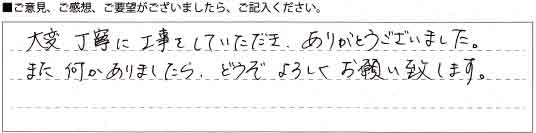 ■ご意見、ご感想、ご要望がございましたら、ご記入ください。
大変 丁寧に 工事をしていただき、ありがとうございました。
また 何かありましたら、どうぞ よろしく お願い致します。